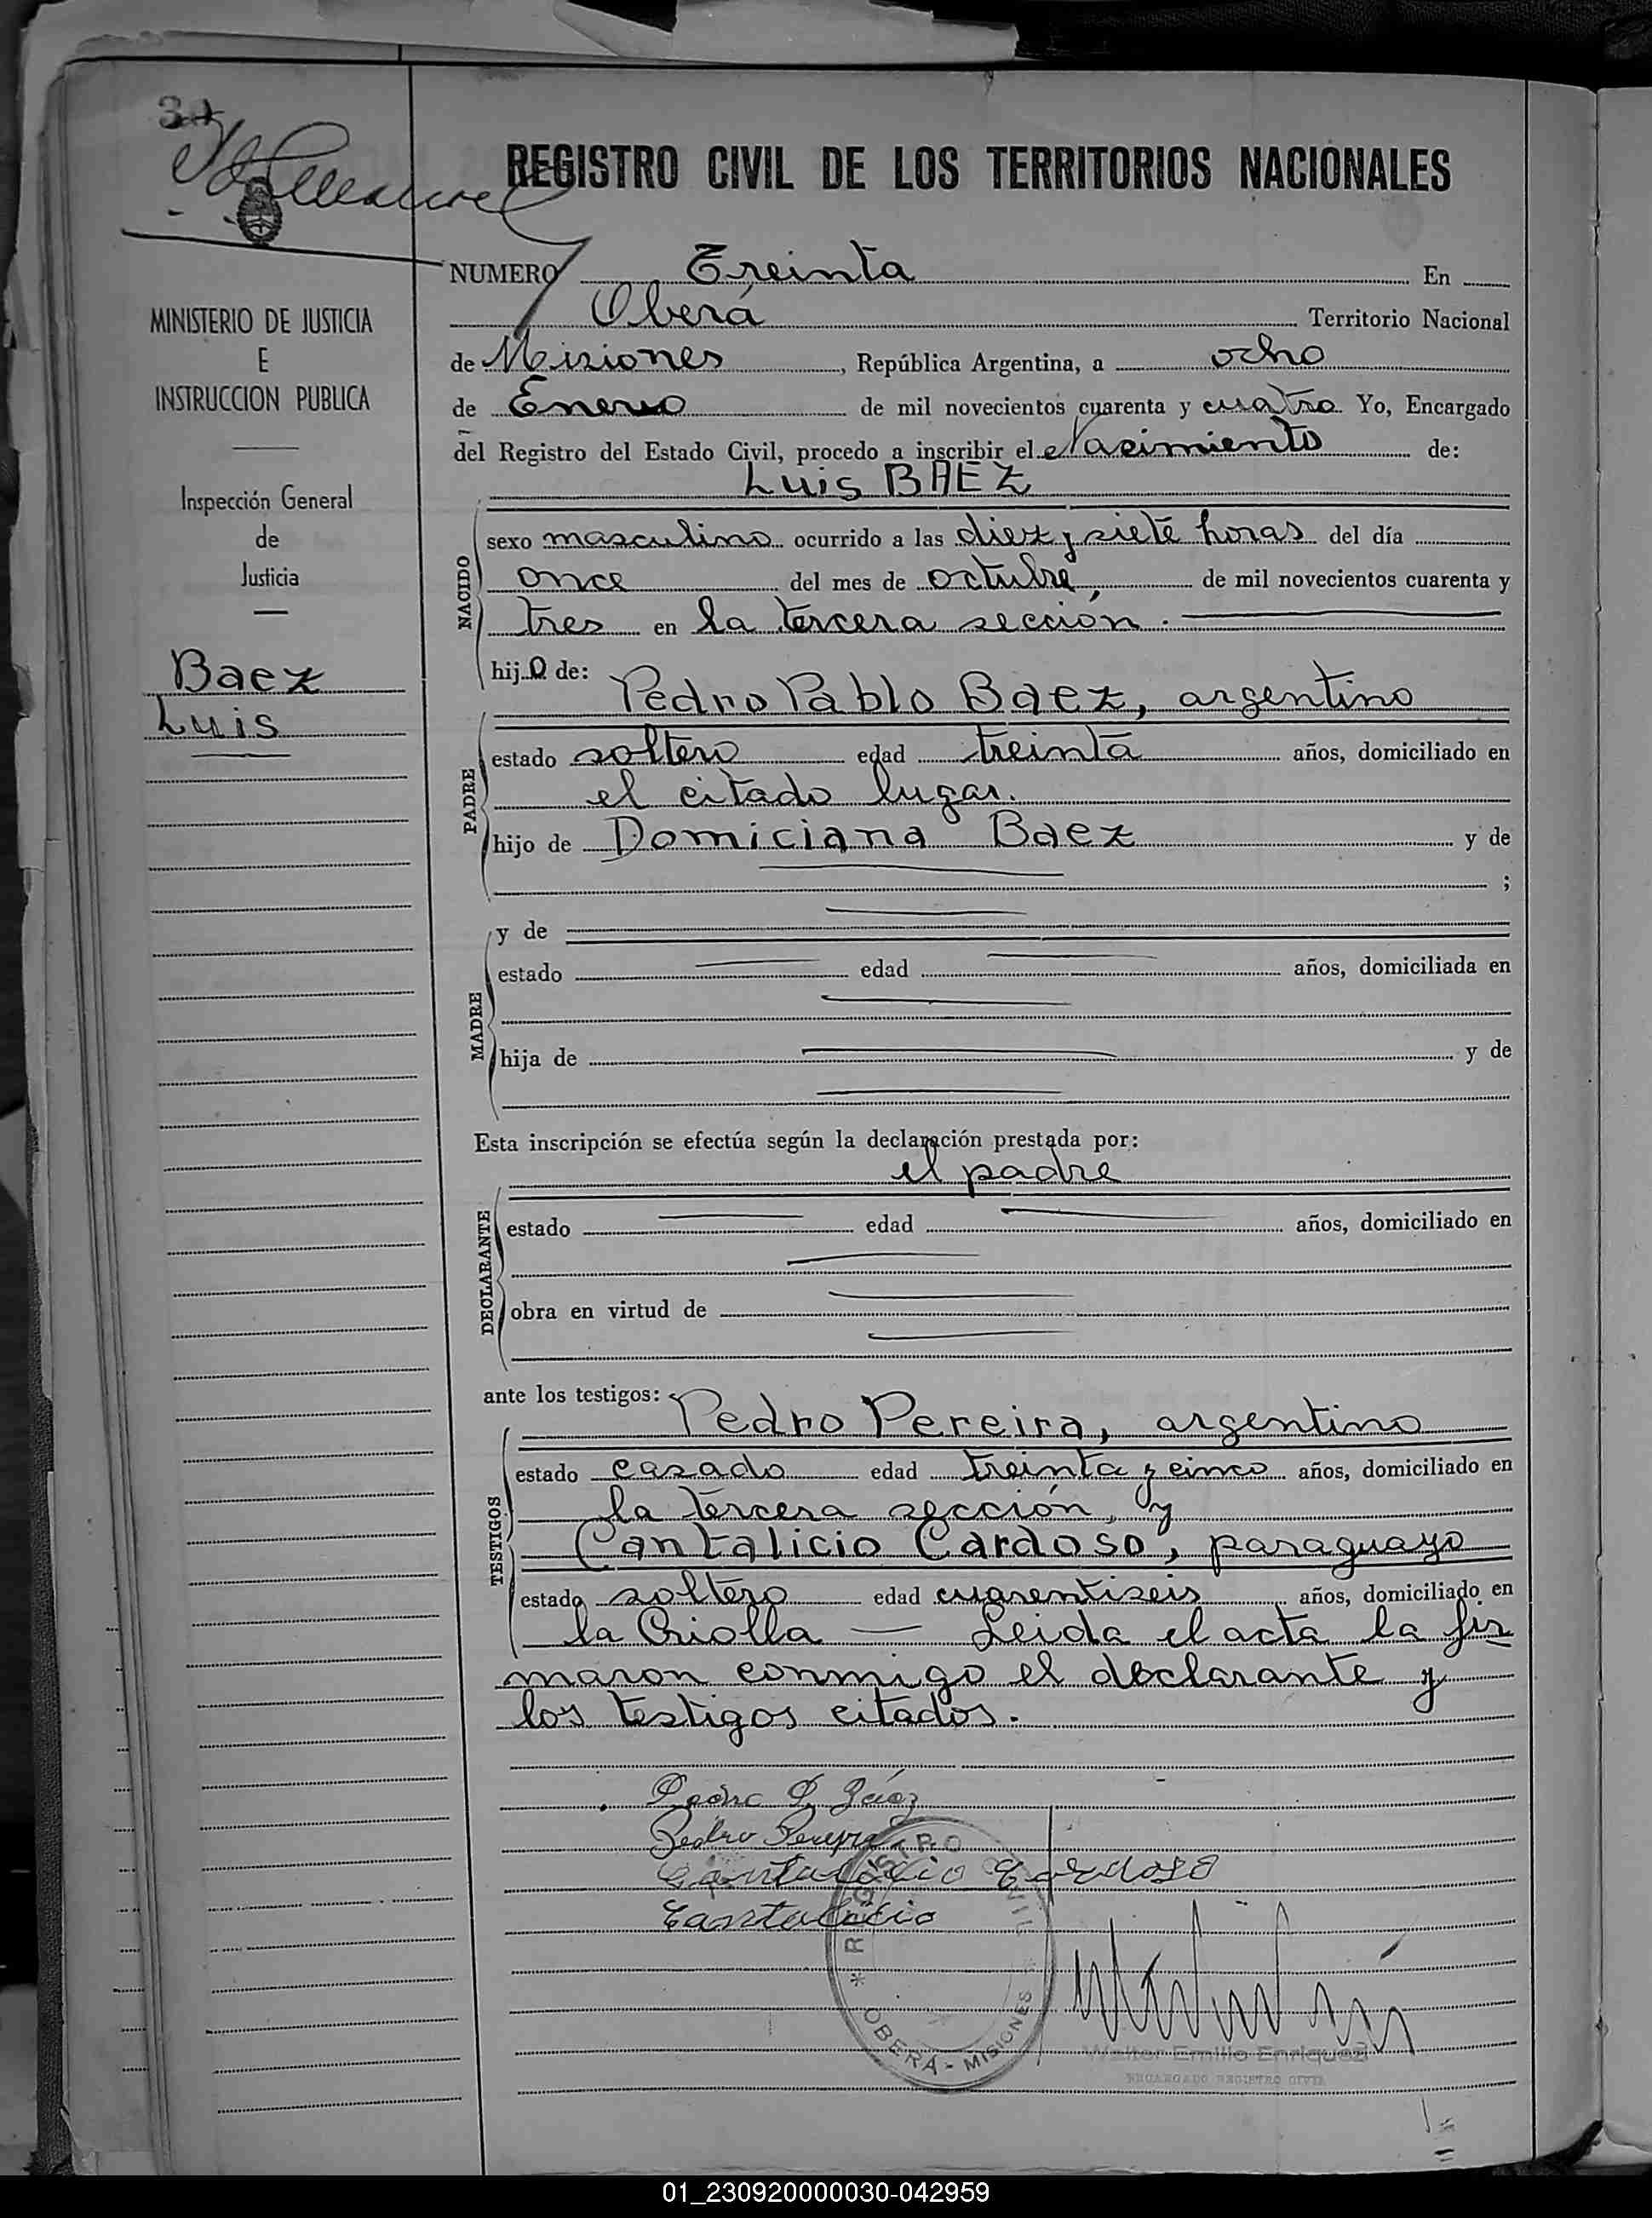 REGISTRO CIVIL DE LOS TERRITORIOS NACIONALES
MINISTERIO DE JUSTICIA
E
INSTRUCCION PUBLICA
Inspección General
de
Justicia
Baez
Luis
NUMERO Treinta En
Oberá Territorio Nacional
de Misiones, República Argentina, a ocho
de Enero de mil novecientos cuarenta y cuatro Yo, Encargado
del Registro del Estado Civil, procedo a inscribir el Nacimiento de:
Luis BAEZ
NACIDO
sexo masculino ocurrido a las diez y siete horas del día
once del mes de octubre, de mil novecientos cuarenta y
tres en la tercera sección.
hijo de:
Pedro Pablo Baez, argentino
PADRE
estado soltero edad treinta años, domiciliado en
el citado lugar.
hijo de Domiciana Baez y de
;
MADRE
y de
estado edad años, domiciliada en
hija de y de
Esta inscripción se efectúa según la declaración prestada por:
el padre
DECLARANTE
estado edad años, domiciliado en
obra en virtud de
ante los testigos:
Pedro Pereira, argentino
TESTIGOS
estado casado edad treinta y cinco años, domiciliado en
la tercera sección, y
Cantalicio Cardoso, paraguayo
estado soltero edad cuarentiseis años, domiciliado en
la Criolla — Leida el acta la fir
maron conmigo el declarante y
los testigos citados.
Pedro P. Báez
Pedro Pereyra
Cantalicio Cardoso
Cantalicio
REGISTRO CIVIL
* OBERÁ - MISIONES
Walter Emilio Enriquez
ENCARGADO REGISTRO CIVIL
01_230920000030-042959